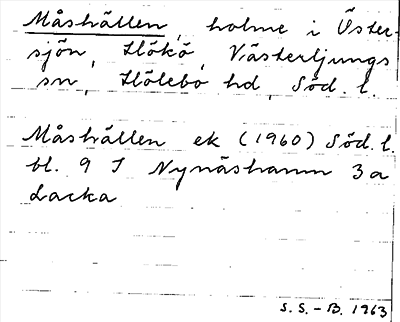 Måshällen, holme i Öster-
sjön, Hökö, Västerljungs
sn, Hölebo hd, Söd. l.
Måshällen ek (1960) Söd. l.
bl. 9 I Nynäshamn 3 a
Lacka
S. S. - B. 1963